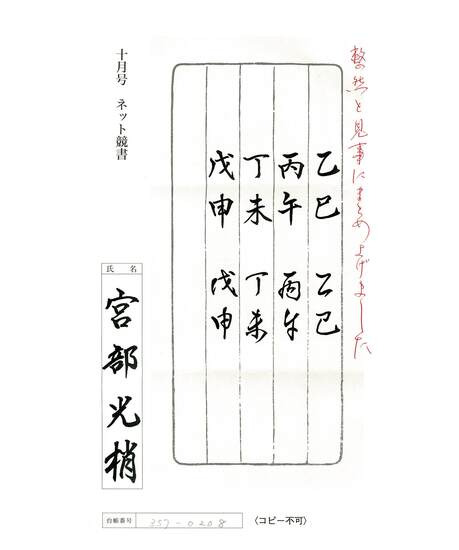 整然と見事にまとめ上げました
乙巳 乙巳
丙午 丙午
丁未 丁未
戊申 戊申
十月号 ネット競書
氏名
宮部光梢
台帳番号 357-0208
〈コピー不可〉